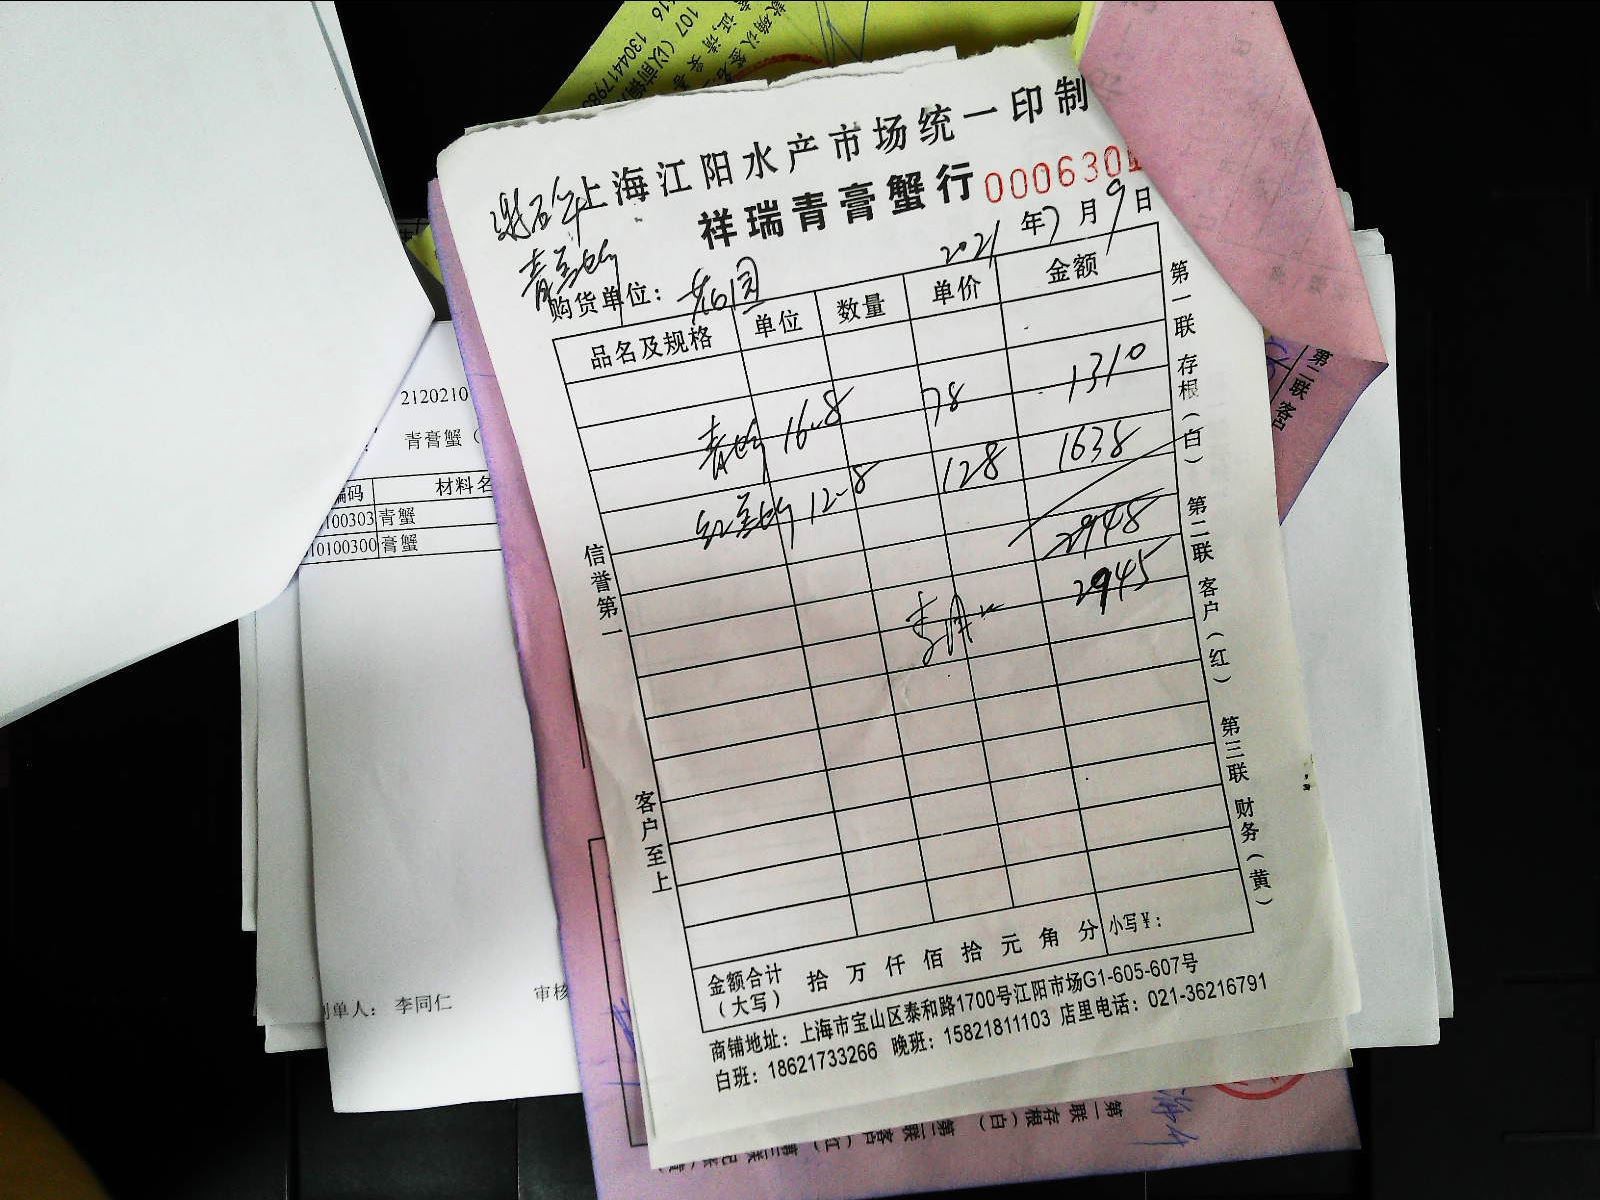 上海江阳水产市场统一印制
祥瑞青膏蟹行 000630
2021年7月9日
购货单位：
品名及规格 单位 数量 单价 金额
青蟹 16.8 78 1310
红膏蟹 12.8 128 1638
2948
2945
信誉第一
客户至上
第一联 存根（白） 第二联 客户（红） 第三联 财务（黄）
金额合计（大写） 拾 万 仟 佰 拾 元 角 分 小写¥：
商铺地址：上海市宝山区泰和路1700号江阳市场G1-605-607号
白班：18621733266 晚班：15821811103 店里电话：021-36216791
2120210
青膏蟹（
编码 材料名
100303 青蟹
10100300 膏蟹
制单人： 李同仁 审核
第二联 客
第一联 存根（白） 第二联 客户（红） 第三联 记账（黄）
107（以前